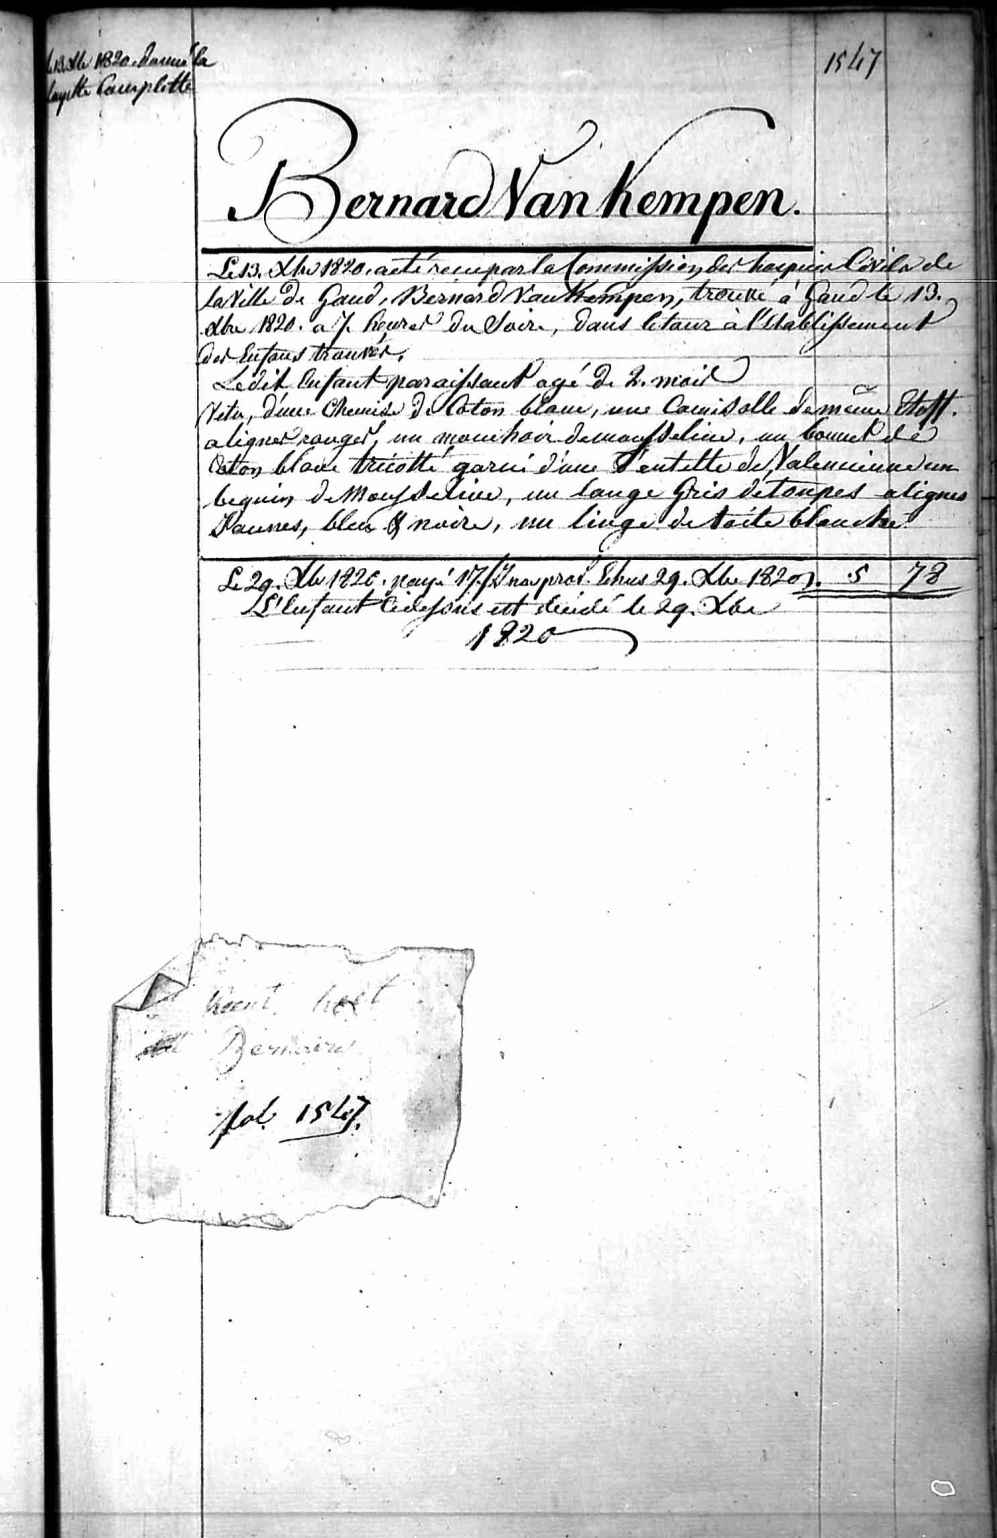 Le 13. Xbre 1820. donné la
layette Complette
1547
Bernard Van Kempen.
Le 13. Xbre 1820. a été reçu par la Commission des hospices Civils de
la Ville de Gand, Bernard Van Kempen, trouvé à Gand le 13.
Xbre 1820. a 7. heures du Soire, dans le tour à l'Etablissement
des Enfans trouvés.
Ledit Enfant paraissant agé de 2. mois
Vetu, d'une Chemise de Coton blanc, une Camisolle de même Etoff.
a lignes rouges, un mouchoir de mousseline, un bonnet de
Coton blanc tricotté garni d'une Dentelle de Valencienne un
beguin de Mousseline, un lange Gris d'étoupes a lignes
Jaunes, bleu & noire, un linge de toile blanche
Le 29. Xbre 1820. payé 17. Jrs 29. Xbre 1820. 5 78
L'Enfant Cidessus est décédé le 29. Xbre
1820
kent heet
Bernard
fol. 1547.